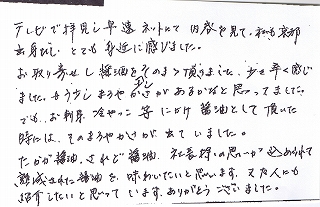 テレビで拝見し早速ネットにて内容を見て、私も京都
出身なので、とても身近に感じました。
お取り寄せし醤油をそのまゝ頂きました。少し辛く感じ
ました。もう少しまろやかさがあるかなと思ってました。
でも、お刺身、冷やっこ等にかけ醤油として頂いた
時には、そのまろやかさが出ていました。
たかが醤油、されど醤油、社長様の思いが込められて
熟成された醤油を、味わいたいと思います。又友人にも
紹介したいと思っています。ありがとうございました。